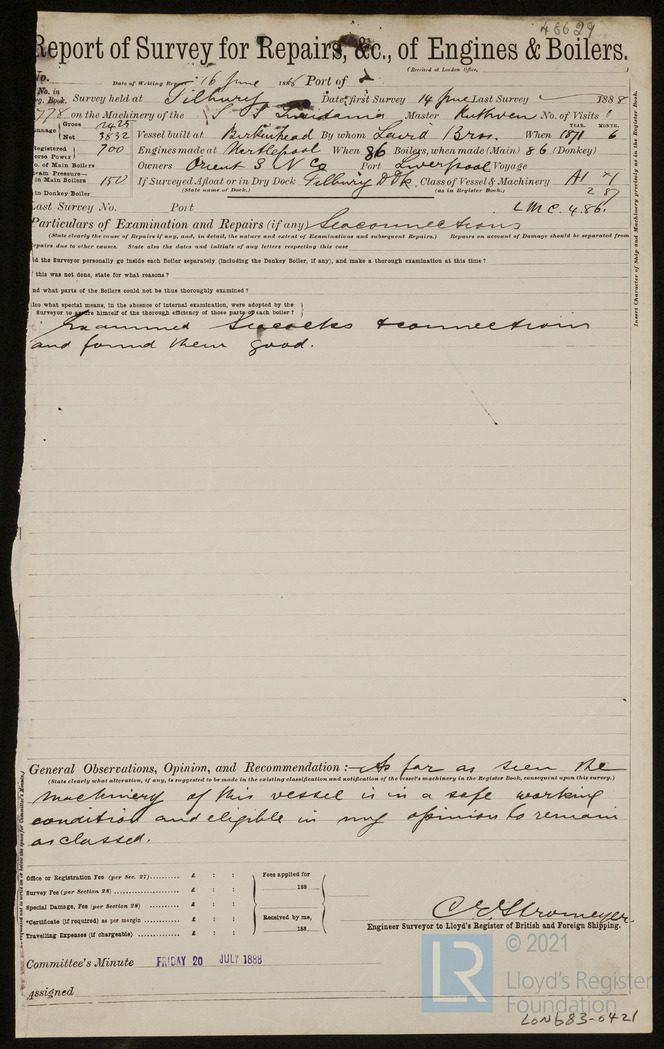 48629
Report of Survey for Repairs, &c., of Engines & Boilers.
(Received at London Office, )
No. Date of Writing Report 16 June 188 Port of
No. in Reg. Book. Survey held at Tilbury Date, first Survey 14 June Last Survey 1888
778 on the Machinery of the S S Lusitania Master Ruthven No. of Visits 1
Tonnage Gross 2425 Net 3832 Vessel built at Birkenhead By whom Laird Bros. When YEAR. 1871 MONTH. 6
Registered Horse Power 700 Engines made at Hartlepool When 86 Boilers, when made (Main) 86 (Donkey)
No. of Main Boilers Owners Orient S N Co Port Liverpool Voyage
Steam Pressure— in Main Boilers 150 If Surveyed Afloat or in Dry Dock Tilbury D Dk. Class of Vessel & Machinery A1
in Donkey Boiler (State name of Dock.) (as in Register Book.) 2 87
Last Survey No. Port LMC 4.86.
Particulars of Examination and Repairs (if any) Seaconnections
(State clearly the cause of Repairs if any, and, in detail, the nature and extent of Examinations and subsequent Repairs.) Repairs on account of Damage should be separated from
repairs due to other causes. State also the dates and initials of any letters respecting this case
Did the Surveyor personally go inside each Boiler separately (including the Donkey Boiler, if any), and make a thorough examination at this time?
If this was not done, state for what reasons?
And what parts of the Boilers could not be thus thoroughly examined?
Also what special means, in the absence of internal examination, were adopted by the
Surveyor to assure himself of the thorough efficiency of those parts of each boiler?
Examined Seacocks & connections
and found them good.
General Observations, Opinion, and Recommendation :— As far as seen the
(State clearly what alteration, if any, is suggested to be made in the existing classification and notification of the vessel's machinery in the Register Book, consequent upon this survey.)
machinery of this vessel is in a safe working
condition and eligible in my opinion to remain
as classed.
Office or Registration Fee (per Sec. 27) £ : : Fees applied for
Survey Fee (per Section 28) £ : : 188
Special Damage, Fee (per Section 28) £ : :
*Certificate (if required) as per margin £ : : Received by me,
Travelling Expenses (if chargeable) £ : : 188
C E Stromeyer.
Engineer Surveyor to Lloyd's Register of British and Foreign Shipping.
Committee's Minute FRIDAY 20 JULY 1888
Assigned
Insert Character of Ship and Machinery precisely as in the Register Book.
LR
© 2021
Lloyd's Register
Foundation
LON683-0421